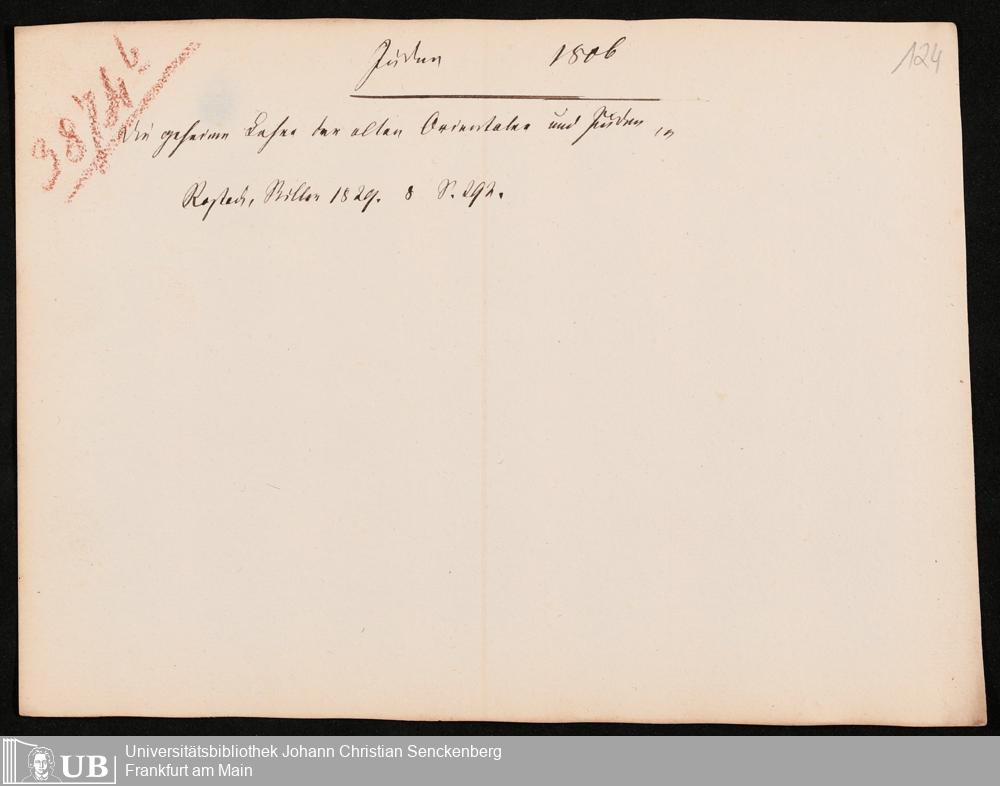 Juden 1806
124
38/744
Die geheime Lehre der alten Orientaler und Juden
Rostock, Stiller 1829. 8 S. 292.
UB
Universitätsbibliothek Johann Christian Senckenberg
Frankfurt am Main